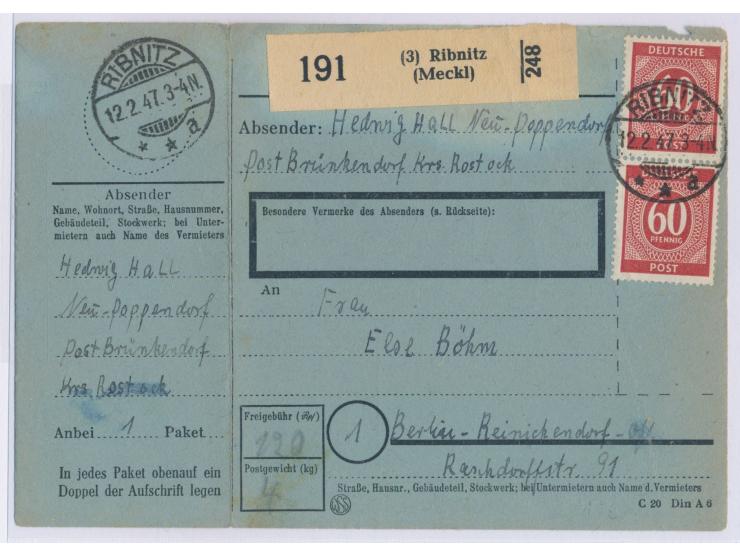 RIBNITZ
12.2.47.3-4N.
* * a
Absender
Name, Wohnort, Straße, Hausnummer,
Gebäudeteil, Stockwerk; bei Unter-
mietern auch Name des Vermieters
Hedwig Hall
Neu-Poppendorf
Post Brünkendorf
Krs Rostock
Anbei 1 Paket
In jedes Paket obenauf ein
Doppel der Aufschrift legen
191
(3) Ribnitz
(Meckl)
248
Absender: Hedwig Hall Neu-Poppendorf
Post Brünkendorf Krs Rostock
Besondere Vermerke des Absenders (s. Rückseite):
An
Frau
Else Böhm
Freigebühr (RM)
120
Postgewicht (kg)
4
1 Berlin-Reinickendorf-
Raschdorffstr 91
Straße, Hausnr., Gebäudeteil, Stockwerk; bei Untermietern auch Name d. Vermieters
C 20 Din A 6
DEUTSCHE
60
POST
RIBNITZ
12.2.47.3-4N
* * a
60
PFENNIG
POST